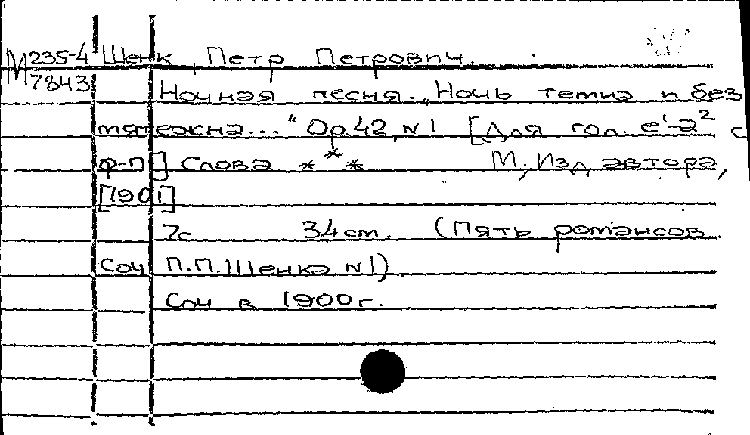 М 235-4 Шенк, Петр Петрович.
7843 Ночная песня. „Ночь темна и без
мятежна..." Op.42, N1 [Для гол. e¹-a² с
ф-п] Слова * * * М., Изд. автора,
[1901]
7с 34 cm. (Пять романсов
Соч. П.П.Шенка N1).
Соч в 1900г.